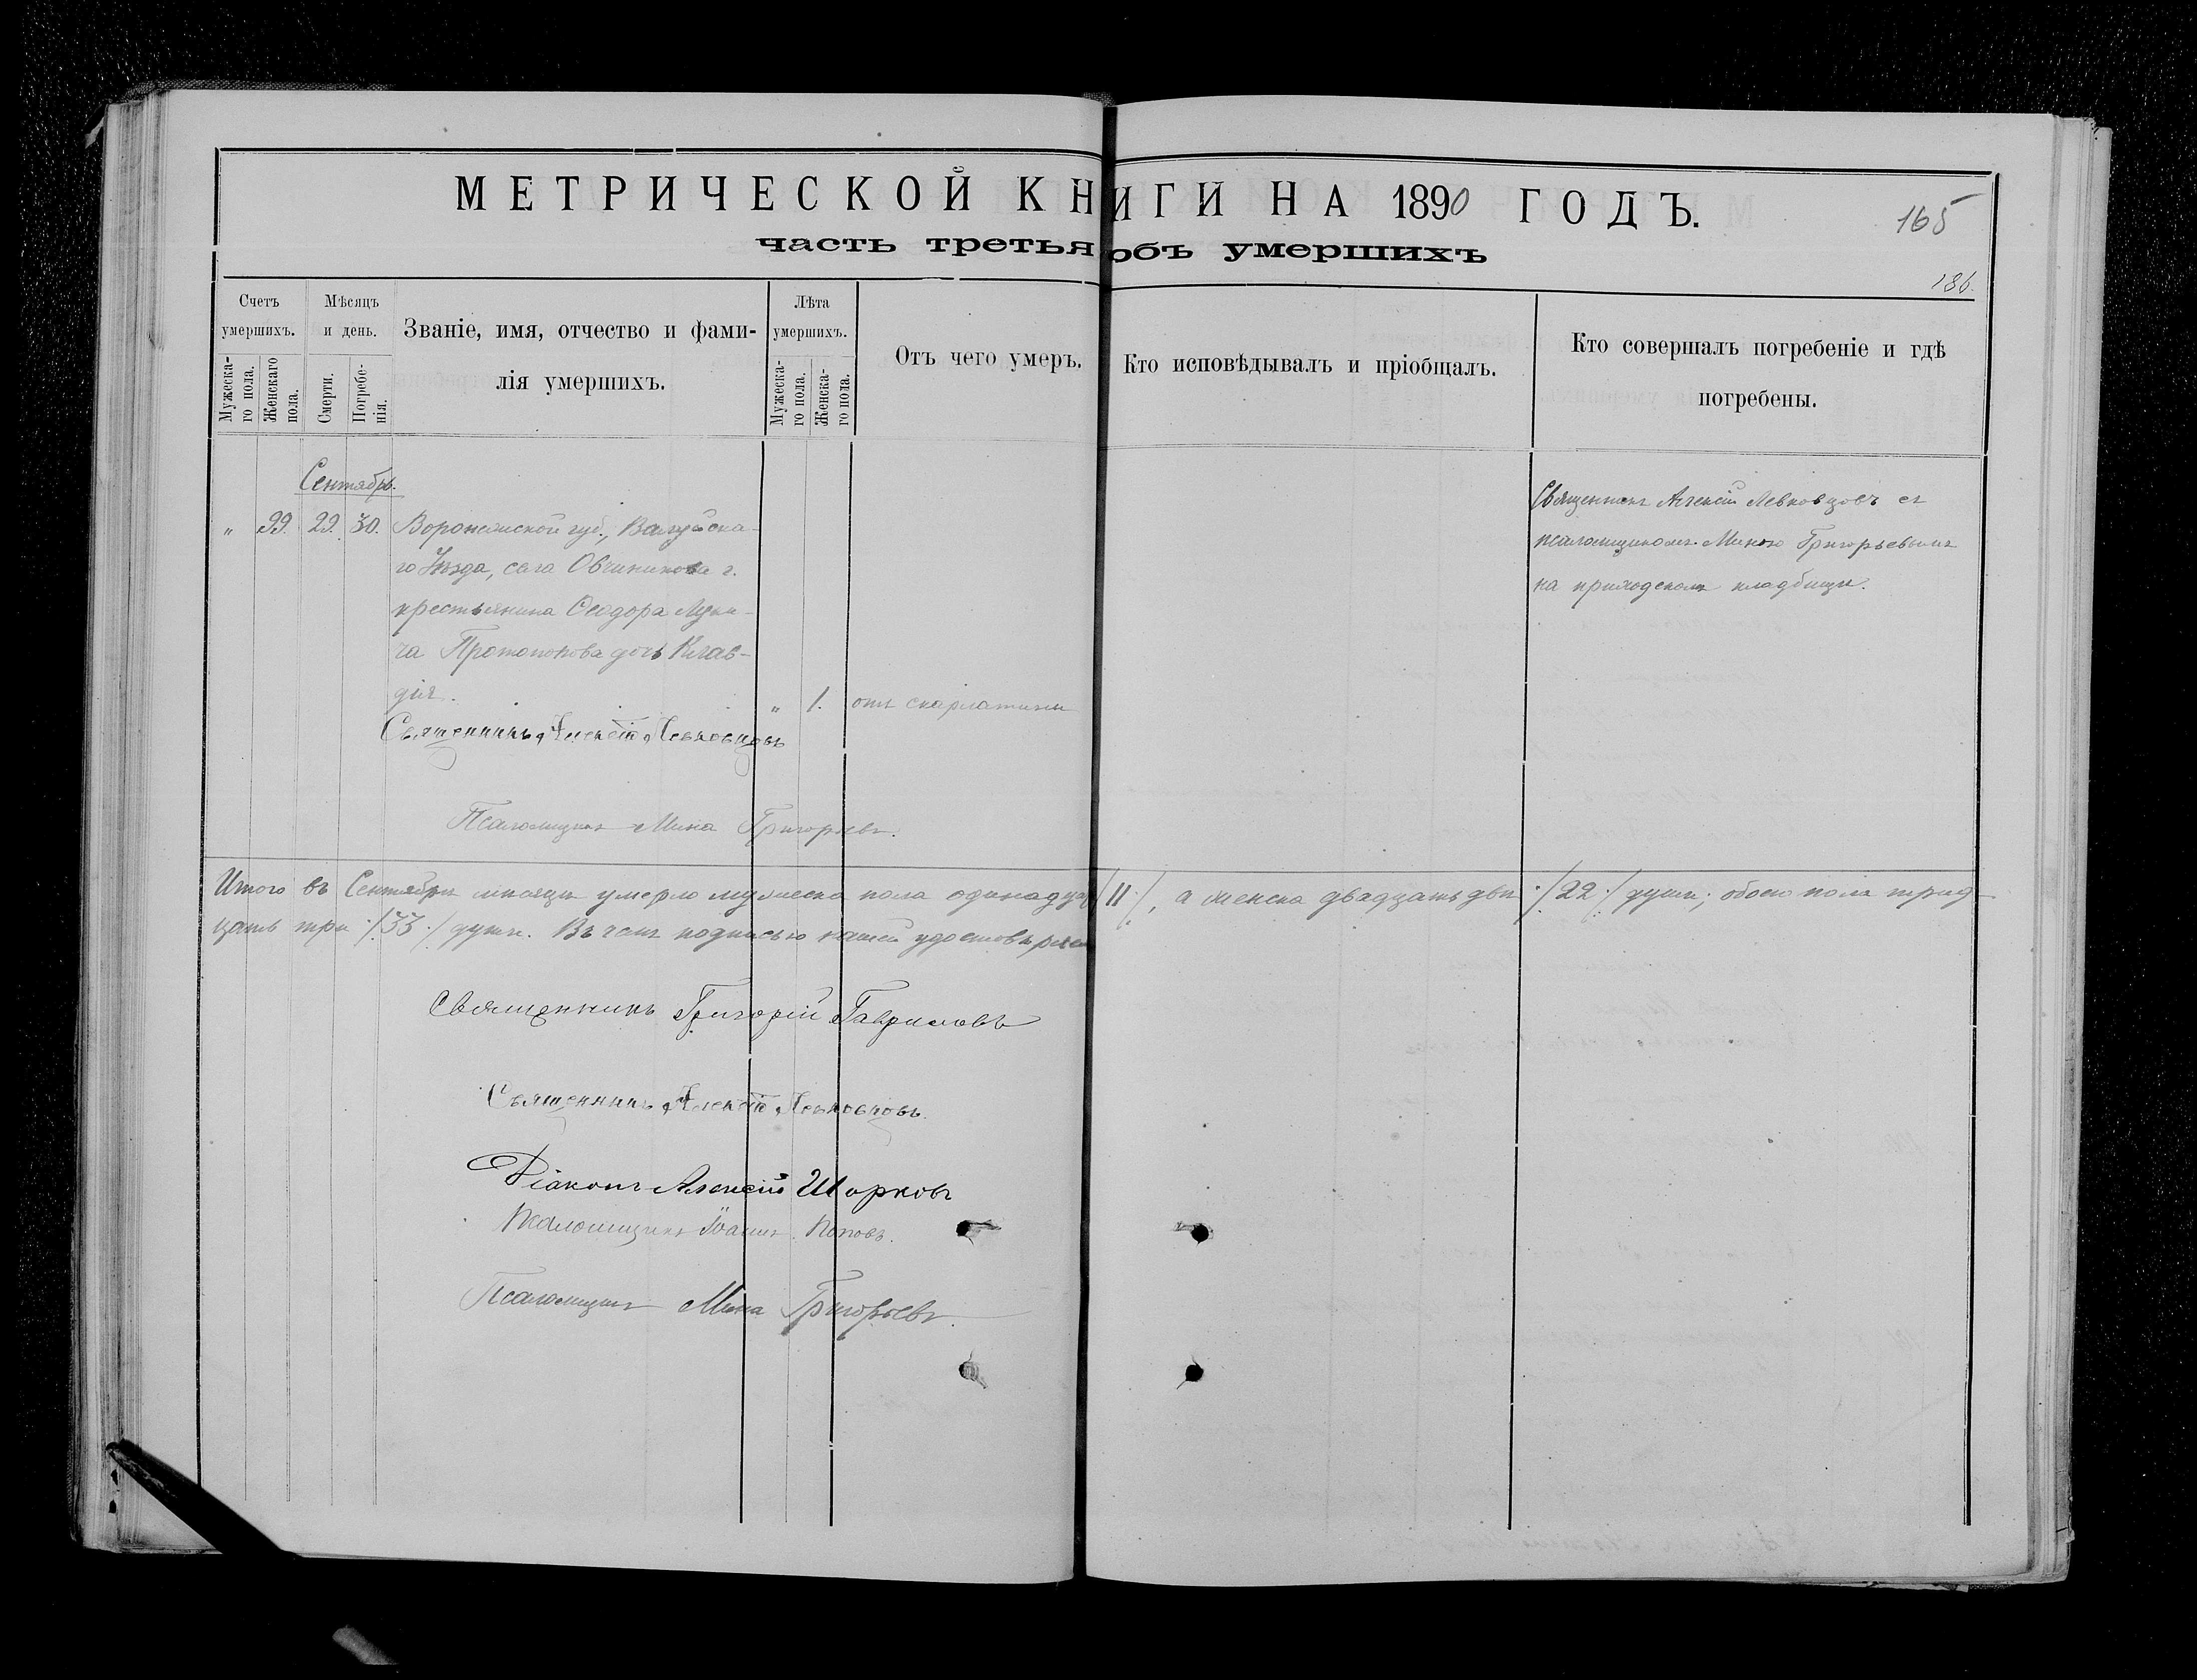 МЕТРИЧЕСКОЙ КНИГИ НА 1890 ГОДЪ.
165
часть третья объ умершихъ
186.
Счетъ умершихъ.
Мѣсяцъ и день.
Званіе, имя, отчество и фами-
лія умершихъ.
Лѣта умершихъ.
Отъ чего умеръ.
Кто исповѣдывалъ и пріобщалъ.
Кто совершалъ погребеніе и гдѣ
погребены.
Мужеска-
го пола.
Женскаго
пола.
Смерти.
Погребе-
нія.
Мужеска-
го пола.
Женска-
го пола.
Сентябрь.
„ 99. 29. 30. Воронежской губ., Валуйска-
го Уѣзда, села Овчиникова г.
крестьянина Ѳеодора Луки-
ча Протопопова дочь Клав-
дія. „ 1. отъ скарлатины
Священникъ Алексій Левковцовъ съ
псаломщикомъ Миною Григорьевымъ
на приходскомъ кладбищѣ.
Священникъ Алексій Левковцовъ
Псаломщикъ Мина Григорьевъ.
Итого въ Сентябрѣ мѣсяцѣ умерло мужеска пола одинадцать /11/, а женска двадцать двѣ /22/ души; обоего пола трид-
цать три /33/ души. Въ чемъ подписью нашей удостовѣряемъ
Священникъ Григорій Гавриловъ
Священникъ Алексій Левковцовъ.
Діаконъ Алексій Шорковъ
Псаломщикъ Іоаннъ Поповъ.
Псаломщикъ Мина Григорьевъ.